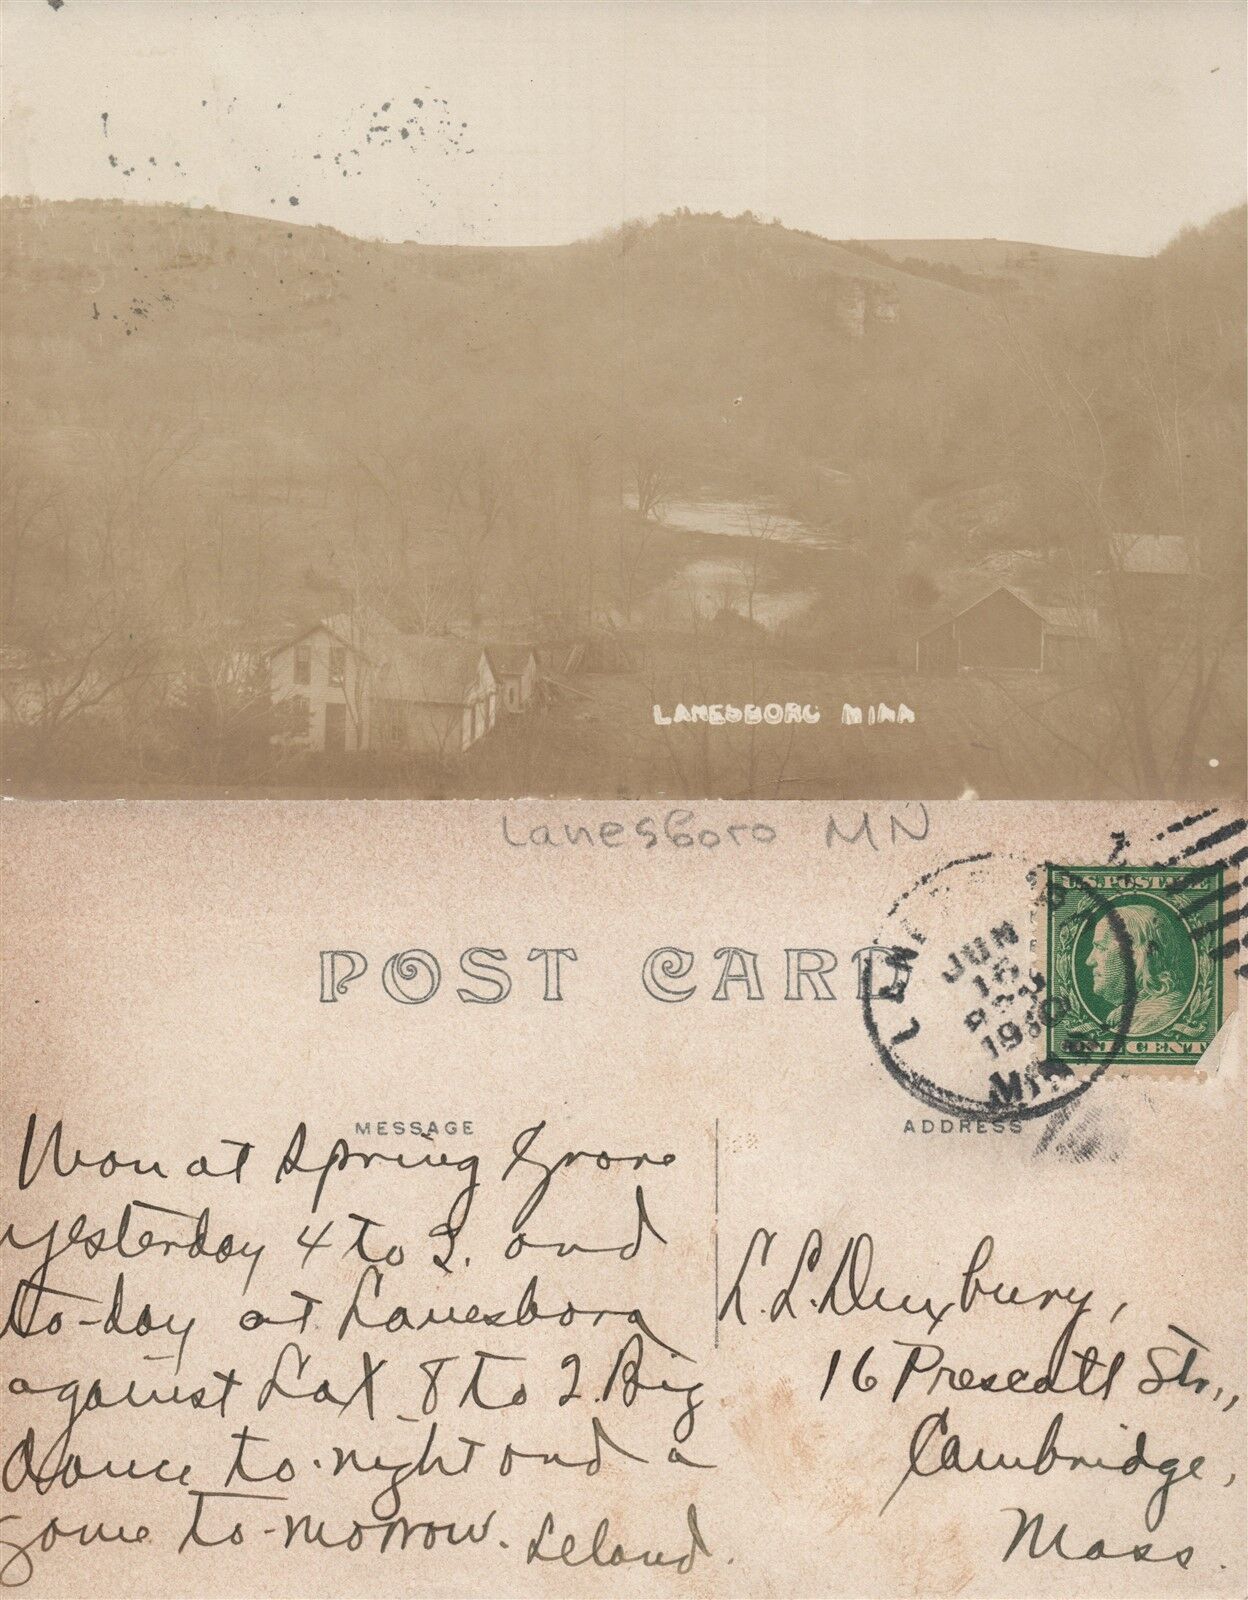 LANESBORO MINN
Lanesboro MN
POST CARD
U.S. POSTAGE
JUN
16
1910
MINN.
ONE CENT
MESSAGE
ADDRESS
Won at Spring Grove
yesterday 4 to 3. and
to-day at Lanesboro
against LaX 8 to 2. Big
dance to-night and a
game to-morrow. Leland.
L. L. Duxbury,
16 Prescott Str.,
Cambridge,
Mass.